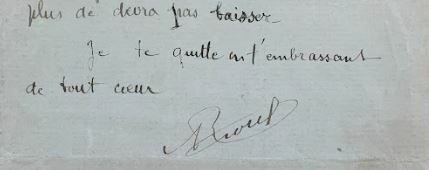 plus de devra pas baisser
Je te quitte en t'embrassant
de tout cœur